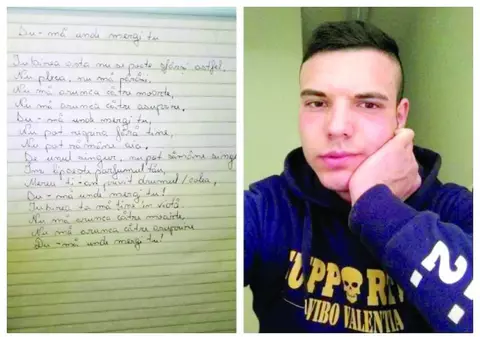 Du-mă unde mergi tu
Iubirea asta nu se poate sfârși astfel.
Nu pleca, nu mă părăsi.
Nu mă arunca către moarte,
Nu mă arunca către asuprire.
Du-mă unde mergi tu,
Nu pot respira fără tine,
Nu pot rămâne aia.
De unul singur, nu pot rămâne
Îmi lipsește parfumul tău,
Mereu ți-am privit drumul/calea,
Du-mă unde mergi tu!
Iubirea ta mă ține în viață.
Nu mă arunca către moarte,
Nu mă arunca către asuprire
Du-mă unde mergi tu!
SUPPORT
VIBO VALENTIA